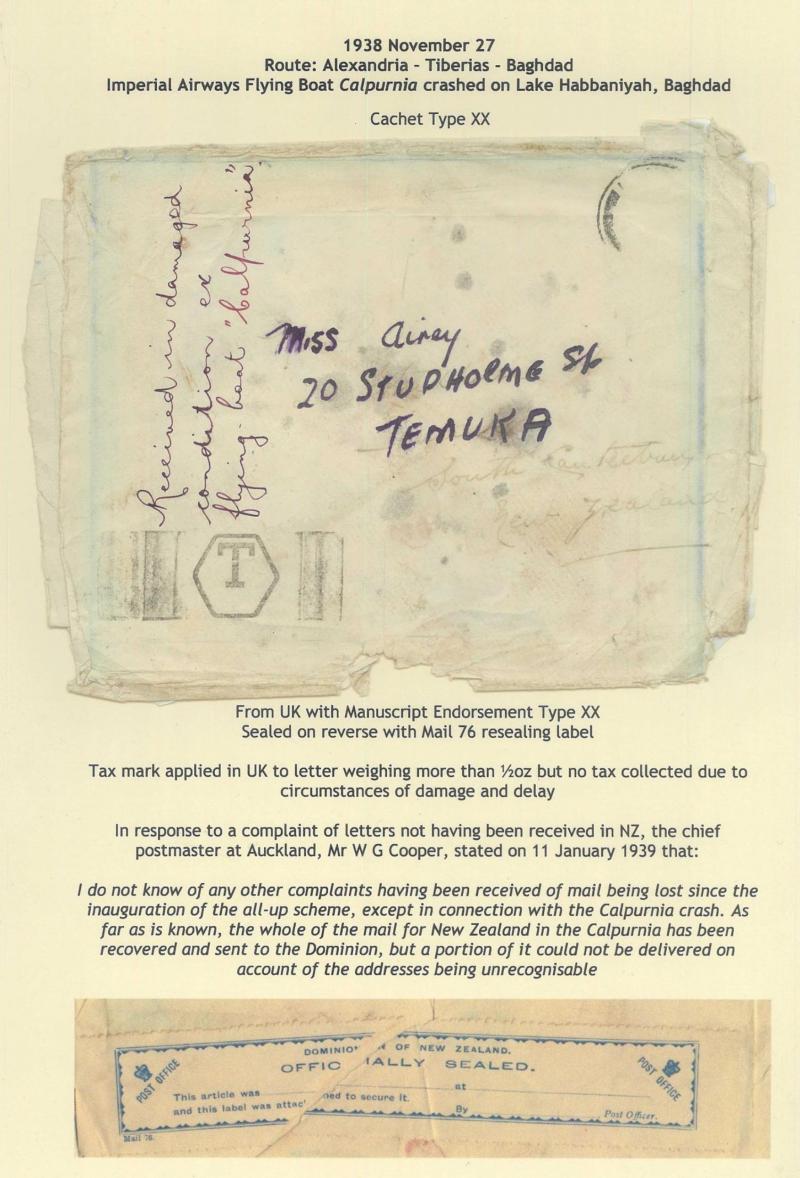 1938 November 27
Route: Alexandria - Tiberias - Baghdad
Imperial Airways Flying Boat Calpurnia crashed on Lake Habbaniyah, Baghdad
Cachet Type XX
Received in damaged
condition ex
flying-boat "Calpurnia".
Miss Airey
20 STUDHOLME St
TEMUKA
South Canterbury
New Zealand
T
From UK with Manuscript Endorsement Type XX
Sealed on reverse with Mail 76 resealing label
Tax mark applied in UK to letter weighing more than ½oz but no tax collected due to
circumstances of damage and delay
In response to a complaint of letters not having been received in NZ, the chief
postmaster at Auckland, Mr W G Cooper, stated on 11 January 1939 that:
I do not know of any other complaints having been received of mail being lost since the
inauguration of the all-up scheme, except in connection with the Calpurnia crash. As
far as is known, the whole of the mail for New Zealand in the Calpurnia has been
recovered and sent to the Dominion, but a portion of it could not be delivered on
account of the addresses being unrecognisable
DOMINIO N OF NEW ZEALAND.
OFFIC IALLY SEALED.
POST OFFICE
POST OFFICE
This article was at
and this label was attac' ned to secure it.
By Post Officer.
Mail 76.